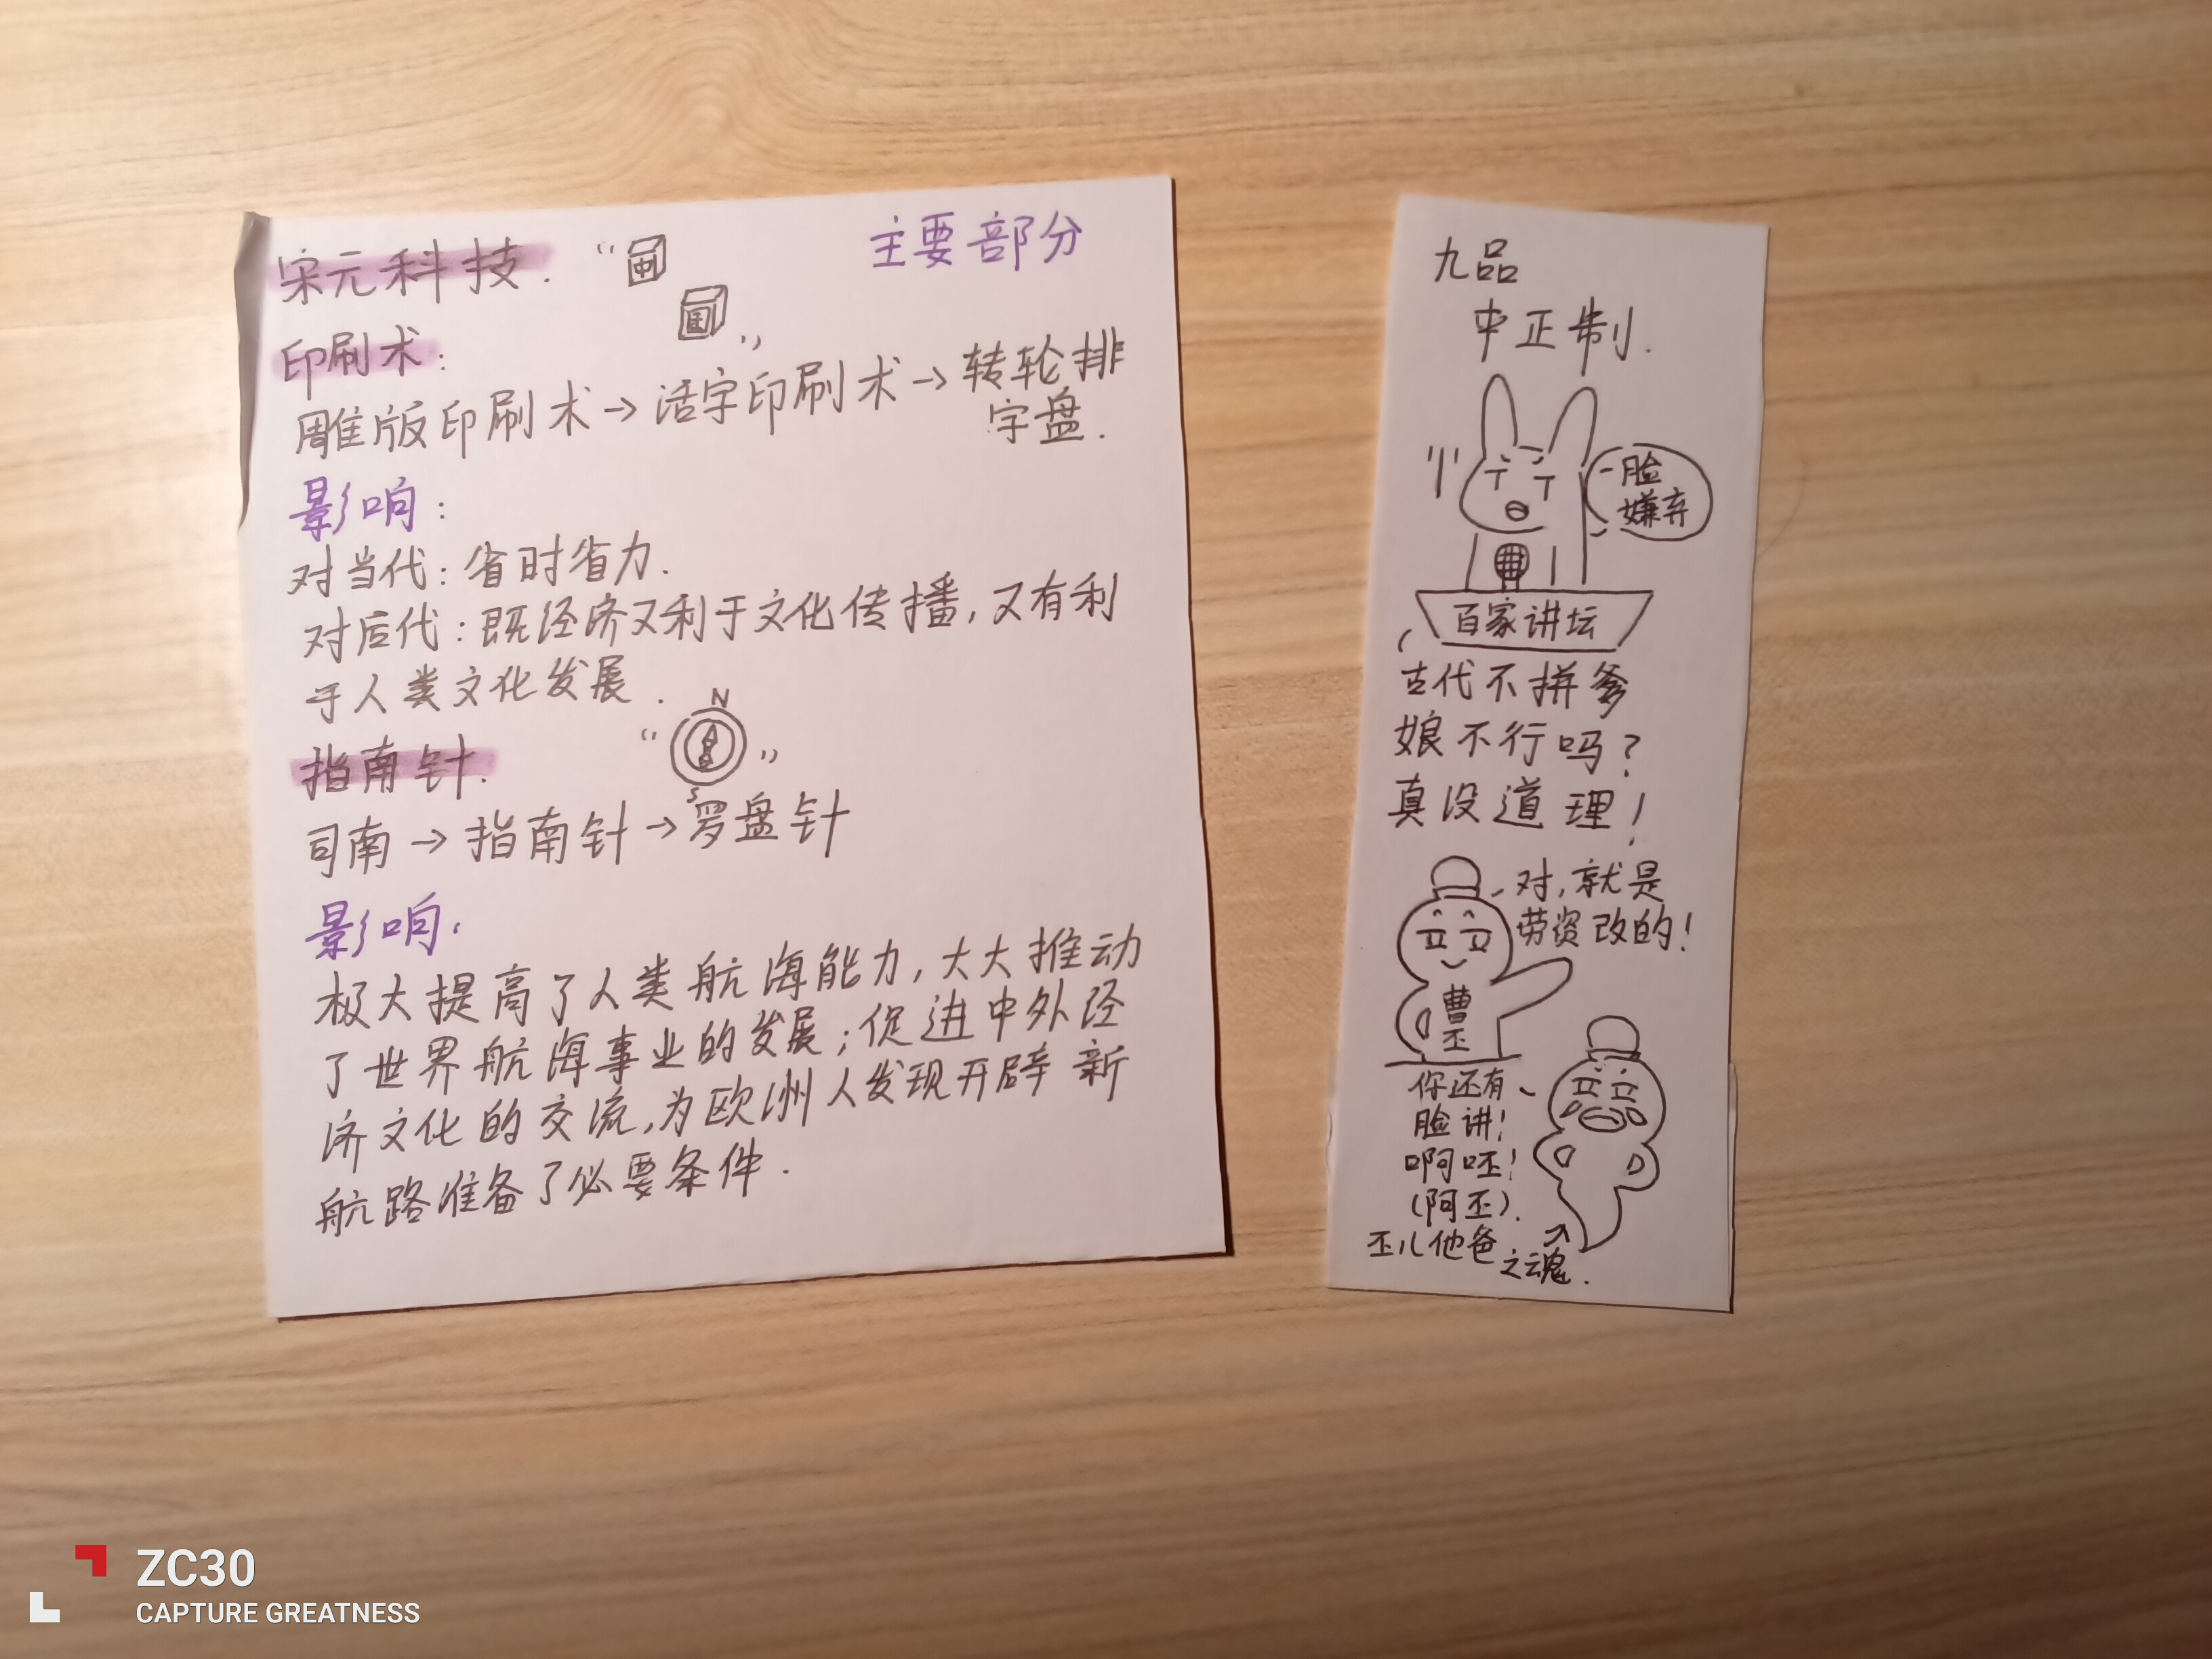 宋元科技.
主要部分
印刷术:
雕版印刷术→活字印刷术→转轮排
字盘.
影响:
对当代:省时省力.
对后代:既经济又利于文化传播,又有利
于人类文化发展.
N
S
指南针.
司南→指南针→罗盘针
影响:
极大提高了人类航海能力,大大推动
了世界航海事业的发展;促进中外经
济文化的交流,为欧洲人发现开辟新
航路准备了必要条件.
九品
中正制.
一脸
嫌弃
百家讲坛
古代不拼爹
娘不行吗?
真没道理!
对,就是
劳资改的!
曹
丕
你还有
脸讲!
啊呸!
(阿丕).
丕儿他爸
之魂.
ZC30
CAPTURE GREATNESS